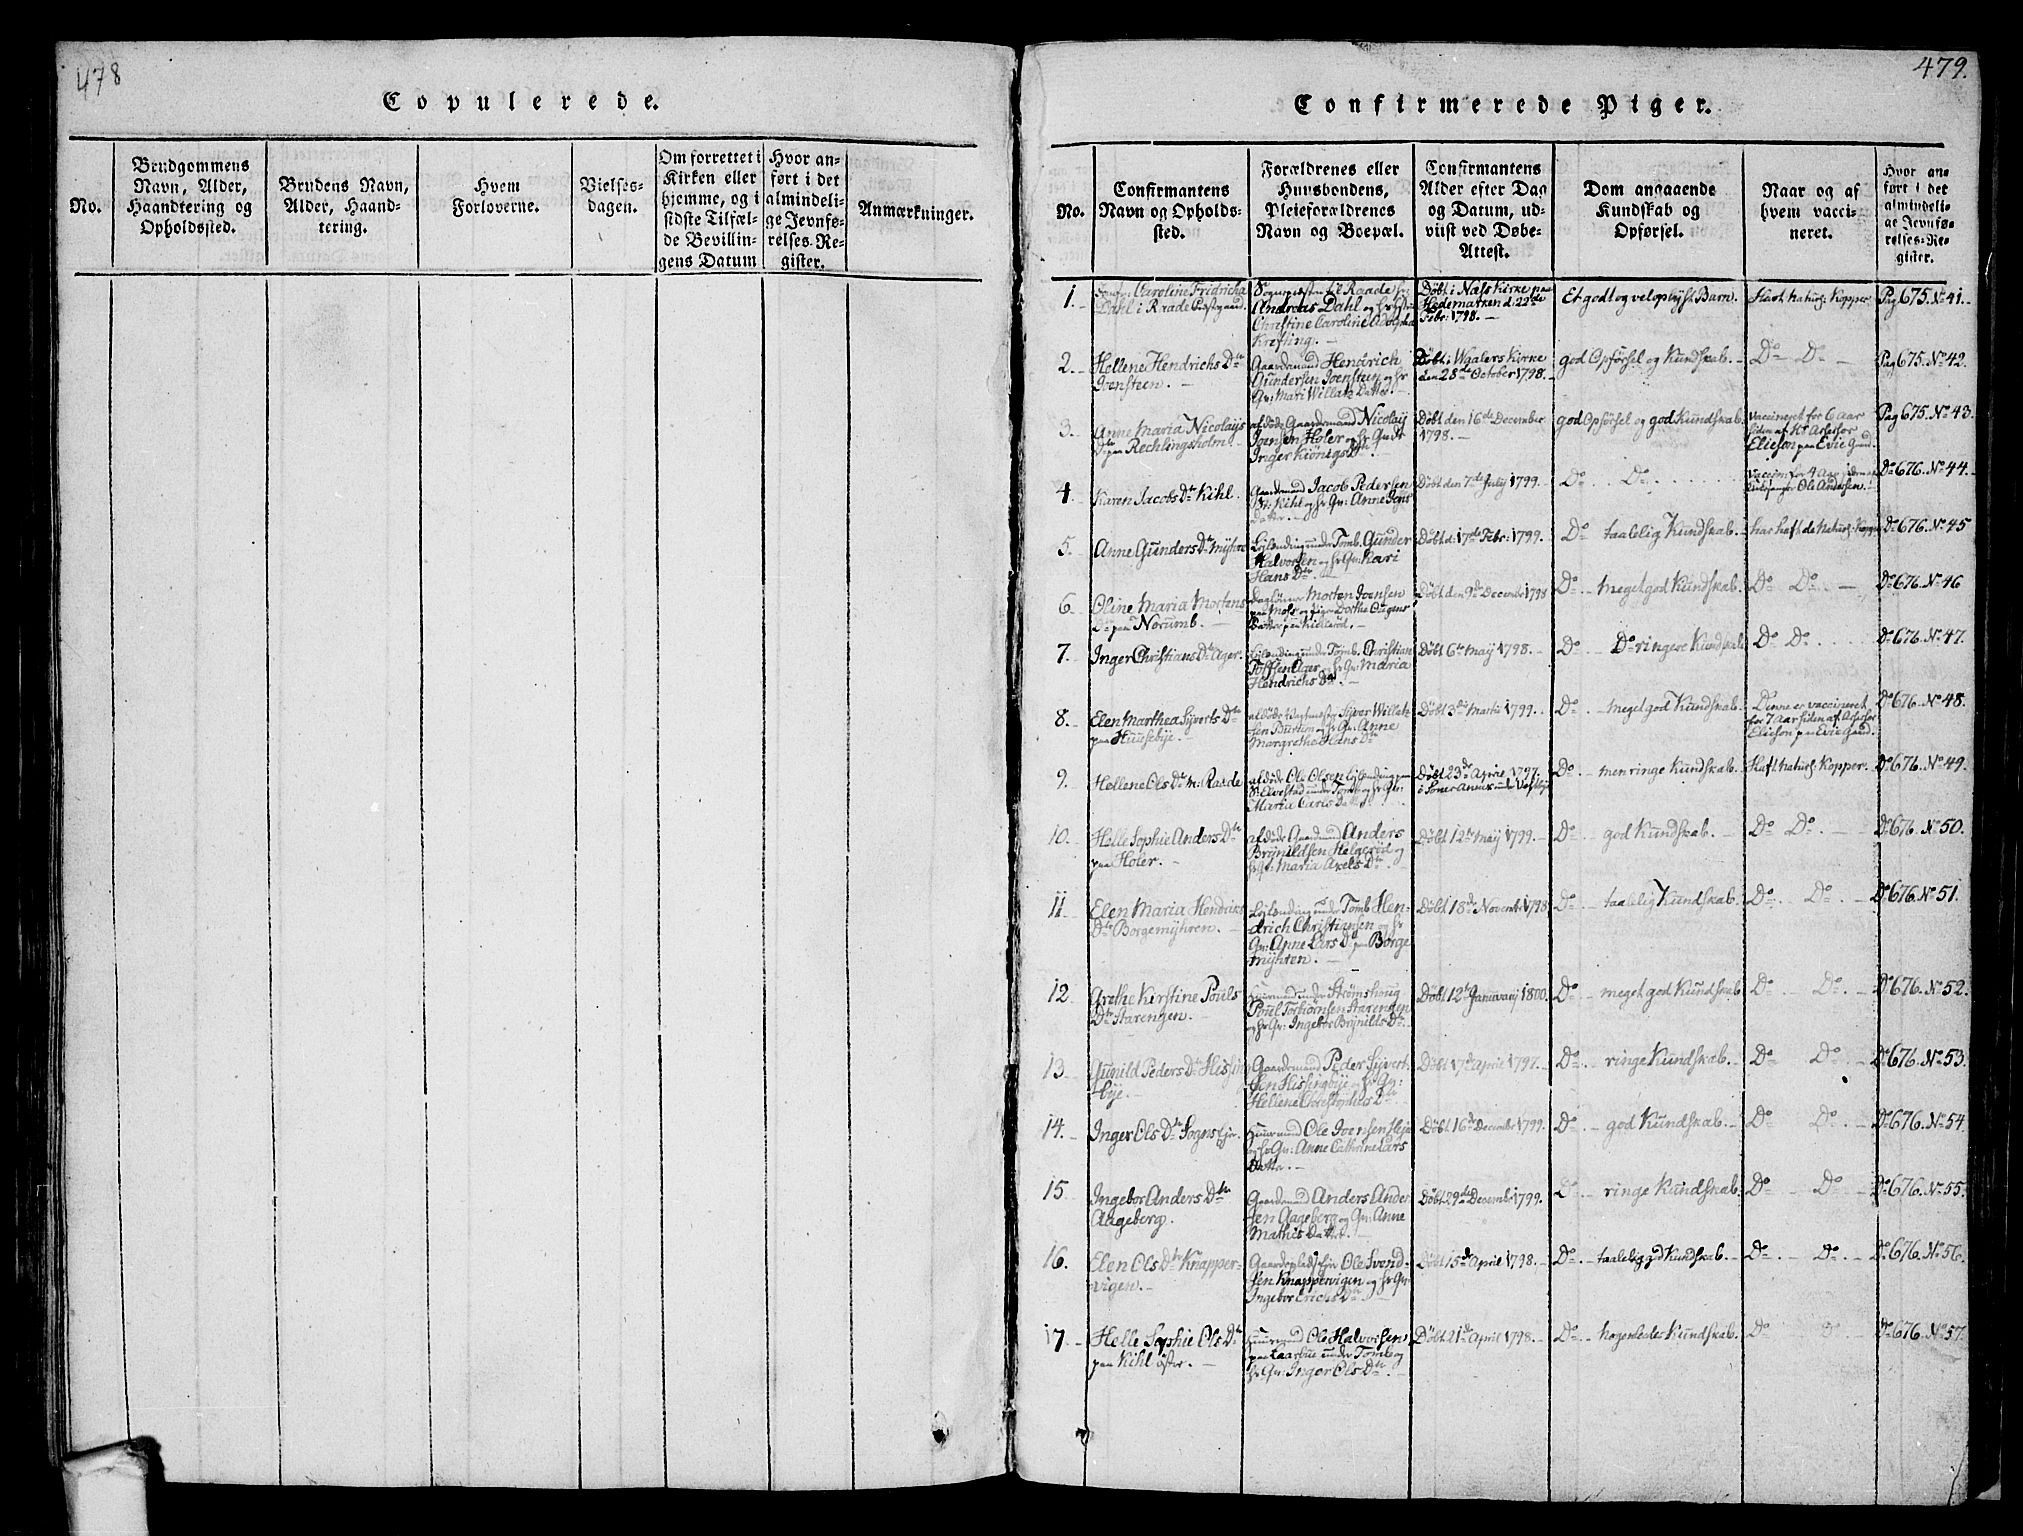 478
Copulerede.
No.
Brudgommens
Navn, Alder,
Haandtering og
Opholdssted.
Brudens Navn,
Alder, Haand-
tering.
Hvem
Forloverne.
Vielses-
dagen.
Om forrettet i
Kirken eller
hjemme, og i
sidste Tilfæl-
de Bevillin-
gens Datum
Hvor an-
ført i det
almindeli-
ge Jevnfø-
relses-Re-
gister.
Anmærkninger.
479.
Confirmerede Piger.
No.
Confirmantens
Navn og Opholds-
sted.
Forældrenes eller
Huusbondens,
Pleieforældrenes
Navn og Boepæl.
Confirmantens
Alder efter Dag
og Datum, ud-
viist ved Døbe-
Attest.
Dom angaaende
Kundskab og
Opførsel.
Naar og af
hvem vacci-
neret.
Hvor an-
ført i det
almindeli-
ge Jevnfø-
relses-Re-
gister.
1.
Caroline Fridricha
Dahl i Raade
Sognepræsten til Raade Hr.
Andreas Dahl og
Christine Caroline
Krefting.
Døbt i Næs Kirke paa
Hedemarken d. 22de
Febr: 1798.
Et godt og veloplyst Barn.
Havt naturl: Kopper
Pag 675. No 41.
2.
Hellene Hendrichs Dtr
Joensteen.
Gaardmand Hendrich
Gundersen Joensteen og hr
Qv: Mari Willatz Datter.
Døbt i Waalers Kirke
den 28de October 1798.
god Opførsel og Kundskab.
Do Do
Pag 675. No 42.
3.
Anne Maria Nicolays
Dtr paa Rechlingsholm.
afdøde Gaardmand Nicolay
Joensen Holer og hr Qv:
Inger Kiönigs Dtr.
Døbt den 16de December
1798.
god Opførsel og god Kundskab.
Vaccineret for 6 Aar
siden af Hr Assessor
Elieson paa Evje Gaard.
Pag 675. No 43.
4.
Karen Jacobs Dtr Kihl.
Gaardmand Jacob Pedersen
Kihl og hr Qv: Anne Jens
Datter.
Døbt den 7de July 1799.
Do Do
Vaccin: for 4 Aar siden af
Ole Andersen.
Do 676. No 44.
5.
Anne Gunders Dtr Myhre
under Tomb. Gunder
Halvorsen og hr Qv: Kari
Hans Dtr.
Døbt d: 17de Febr: 1799.
Do taalelig Kundskab.
har haft de naturl: Kopper
Do 676. No 45
6.
Oline Maria Mortens
Dtr paa Norumb.
Daglønner Morten Joensen
paa Moss og Pige Dorthe
Datter paa Kihlerød.
Døbt den 9de December 1798
Do meget god Kundskab.
Do Do
Do 676. No 46
7.
Inger Christians Dtr Ager.
under Tomb. Christian
Toffsen Ager og hr Qv: Maria
Hendrichs Dtr.
Døbt 6te May 1798.
Do Do ringere Kundskab
Do Do
Do 676. No 47.
8.
Elen Marthea Syverts Dtr
paa Huusebye.
afdøde Syver Willatz
sen og hr Qv: Anne
Margrethe Hans Dtr
Døbt 3de Martii 1799.
Do meget god Kundskab.
Denne er vaccineret
for 7 Aar siden af Assessor
Elieson paa Evje Gaard.
Do 676. No 48.
9.
Hellene Ols Dtr n: Raade
afdøde Ole Olsen
Elvestad under Tomb og hr Qv:
Maria Caris Datter
Døbt 23de April 1797.
i Soner Annex under Vestbye
Do men ringe Kundskab.
Haft naturl: Kopper.
Do 676. No 49.
10.
Helle Sophie Anders Dtr
paa Holer.
afdøde Gaardmand Anders
Brynildsen Helgerød og
hr Qv: Maria Axels Dtr
Døbt 12te May 1799.
Do god Kundskab.
Do Do
Do 676. No 50.
11.
Elen Maria Hendrics
Dtr Borgemyhren.
under Tomb Hen-
drich Christiansen og hr
Qv: Anne Lars Dtr paa Borge
myhren.
Døbt 18de November 1798
Do taalelig Kundskab.
Do Do
Do 676. No 51.
12
Grethe Kirstine Pouls
Dtr Starengen.
Huusmand under Strømshoug
Poul Torbiörnsen Starengen
og hr Qv: Ingebor Brynilds Dtr
Døbt 12te Januarij 1800.
Do meget god Kundskab
Do Do
Do 676. No 52.
13.
Gunild Peders Dtr Hissing
bye.
Gaardmand Peder Syvert-
sen Hissingbye og hr Qv:
Hellene Christophers Dtr
Døbt 17de April 1797.
Do ringe Kundskab.
Do Do
Do 676. No 53.
14.
Inger Ols Dtr
Huusmand Ole Joensen
og hr Qv: Anne Cathrine Lars
Datter.
Døbt 16de December 1799.
Do god Kundskab.
Do Do
Do 676. No 54.
15.
Ingebor Anders Dtr
Aageberg.
Gaardmand Anders Ander
sen Aageberg og Qv: Anne
Mathis Datter.
Døbt 29de December 1799.
Do ringe Kundskab.
Do Do
Do 676. No 55.
16.
Elen Ols Dtr Knapper-
vigen.
Ole Svend-
sen Knappervigen og hr Qv:
Ingebor Erichs Dtr
Døbt 15de April 1798.
Do taalelig god Kundskab.
Do Do
Do 676. No 56.
17.
Helle Sophie Ols Dtr
paa Kihl østre.
Huusmand Ole Halvorsen
paa under Tomb og
hr Qv: Inger Ols Dtr
Døbt 21de April 1798.
Do Kundskab.
Do Do
Do 676. No 57.